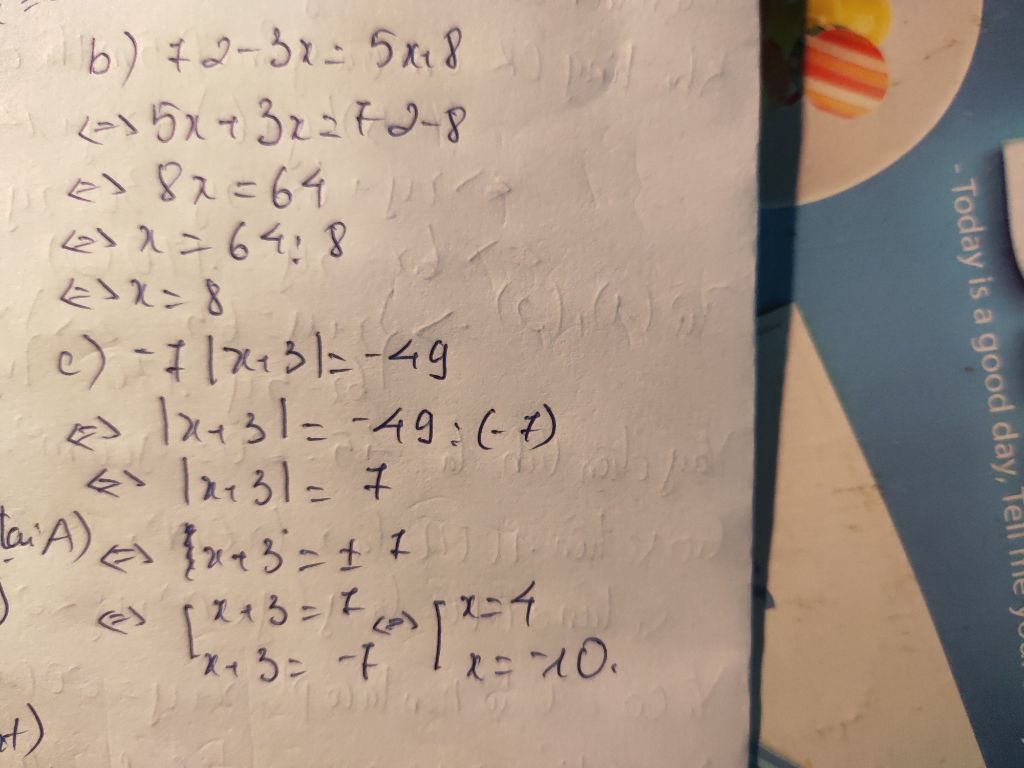 b) 72-3x = 5x+8
<=> 5x + 3x = 72-8
<=> 8x = 64
<=> x = 64: 8
<=> x = 8
c) -7 |x+3| = -49
<=> |x+3| = -49 : (-7)
<=> |x+3| = 7
tại A)
<=> x+3 = ± 7
<=> [ x+3 = 7 <=> [ x=4
x+3 = -7 x = -10.
- Today is a good day, Tell me